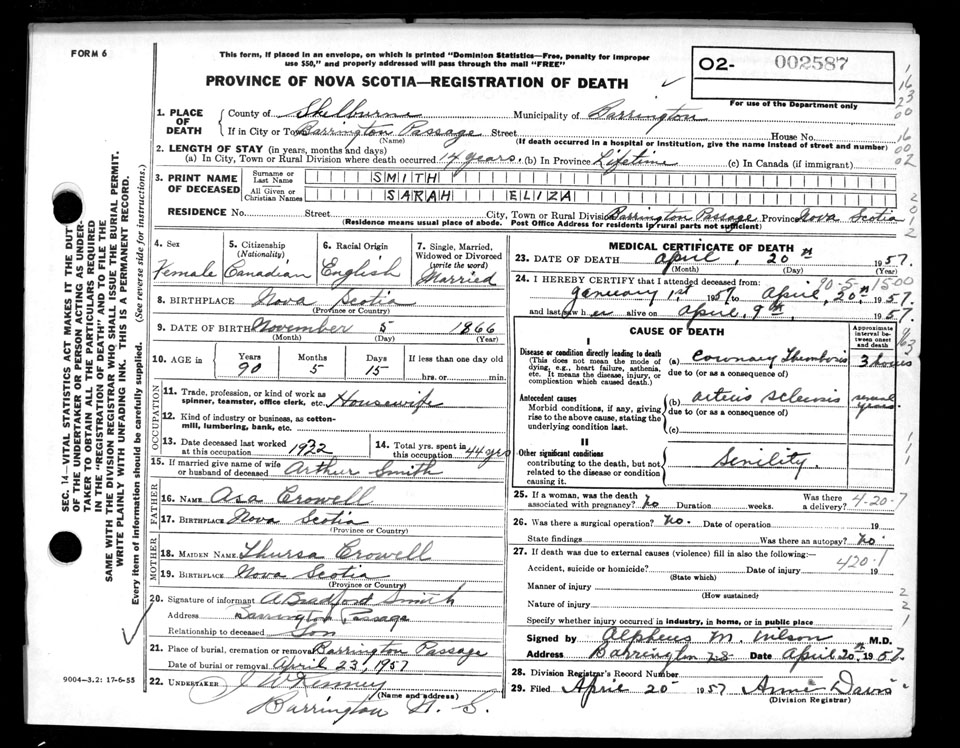 FORM 6
This form, if placed in an envelope, on which is printed "Dominion Statistics—Free, penalty for improper
use $50," and properly addressed will pass through the mail "FREE"
PROVINCE OF NOVA SCOTIA—REGISTRATION OF DEATH
02- 002587
For use of the Department only
1. PLACE OF DEATH
County of Shelburne Municipality of Barrington
If in City or Town Barrington Passage Street House No.
(Name) (If death occurred in a hospital or institution, give the name instead of street and number)
2. LENGTH OF STAY (in years, months and days)
(a) In City, Town or Rural Division where death occurred 14 years. (b) In Province Lifetime (c) In Canada (if immigrant)
3. PRINT NAME OF DECEASED
Surname or Last Name SMITH
All Given or Christian Names SARAH ELIZA
RESIDENCE No. Street City, Town or Rural Division Barrington Passage Province Nova Scotia
(Residence means usual place of abode. Post Office Address for residents in rural parts not sufficient)
4. Sex Female
5. Citizenship (Nationality) Canadian
6. Racial Origin English
7. Single, Married, Widowed or Divorced (write the word) Married
8. BIRTHPLACE Nova Scotia
(Province or Country)
9. DATE OF BIRTH November 5 1866
(Month) (Day) (Year)
10. AGE in Years 90 Months 5 Days 15 If less than one day old hrs. or min.
OCCUPATION
11. Trade, profession, or kind of work as spinner, teamster, office clerk, etc. Housewife
12. Kind of industry or business, as cotton-mill, lumbering, bank, etc.
13. Date deceased last worked at this occupation 1932
14. Total yrs. spent in this occupation 44 yrs
15. If married give name of wife or husband of deceased Arthur Smith
FATHER
16. NAME Asa Crowell
17. BIRTHPLACE Nova Scotia
(Province or Country)
MOTHER
18. MAIDEN NAME Thursa Crowell
19. BIRTHPLACE Nova Scotia
(Province or Country)
20. Signature of informant A Bradford Smith
Address Barrington Passage
Relationship to deceased Son
21. Place of burial, cremation or removal Barrington Passage
Date of burial or removal April 23, 1957
22. UNDERTAKER J W Kenney
(Name and address)
Barrington N. S.
9004-3.2: 17-6-55
MEDICAL CERTIFICATE OF DEATH
23. DATE OF DEATH April, 20th 1957.
(Month) (Day) (Year)
90-5-1500
24. I HEREBY CERTIFY that I attended deceased from:
January 1st 1957 to April, 20th 1957.
and last saw her alive on April, 9th, 1957.
CAUSE OF DEATH
Approximate interval between onset and death
I
Disease or condition directly leading to death
(This does not mean the mode of dying, e.g., heart failure, asthenia, etc. It means the disease, injury, or complication which caused death.)
(a) Coronary Thrombosis 3 hours
due to (or as a consequence of)
Antecedent causes
Morbid conditions, if any, giving rise to the above cause, stating the underlying condition last.
(b) arterio sclerosis several years.
due to (or as a consequence of)
(c)
II
Other significant conditions
contributing to the death, but not related to the disease or condition causing it.
Senility.
25. If a woman, was the death associated with pregnancy? No Duration weeks. Was there a delivery?
4-20-7
26. Was there a surgical operation? No. Date of operation 19
State findings Was there an autopsy? No.
27. If death was due to external causes (violence) fill in also the following:—
420-1
Accident, suicide or homicide? Date of injury 19
(State which)
Manner of injury
(How sustained)
Nature of injury
Specify whether injury occurred in industry, in home, or in public place
Signed by Alpheus M. Wilson M.D.
Address Barrington N.S. Date April 20th, 1957.
28. Division Registrar's Record Number
29. Filed April 20 1957 Annie Davis
(Division Registrar)
SEC. 14—VITAL STATISTICS ACT MAKES IT THE DUTY
OF THE UNDERTAKER OR PERSON ACTING AS UNDER-
TAKER TO OBTAIN ALL THE PARTICULARS REQUIRED
IN THE "REGISTRATION OF DEATH" AND TO FILE THE
SAME WITH THE DIVISION REGISTRAR WHO SHALL ISSUE THE BURIAL PERMIT.
WRITE PLAINLY WITH UNFADING INK. THIS IS A PERMANENT RECORD.
Every item of information should be carefully supplied. (See reverse side for instructions.)